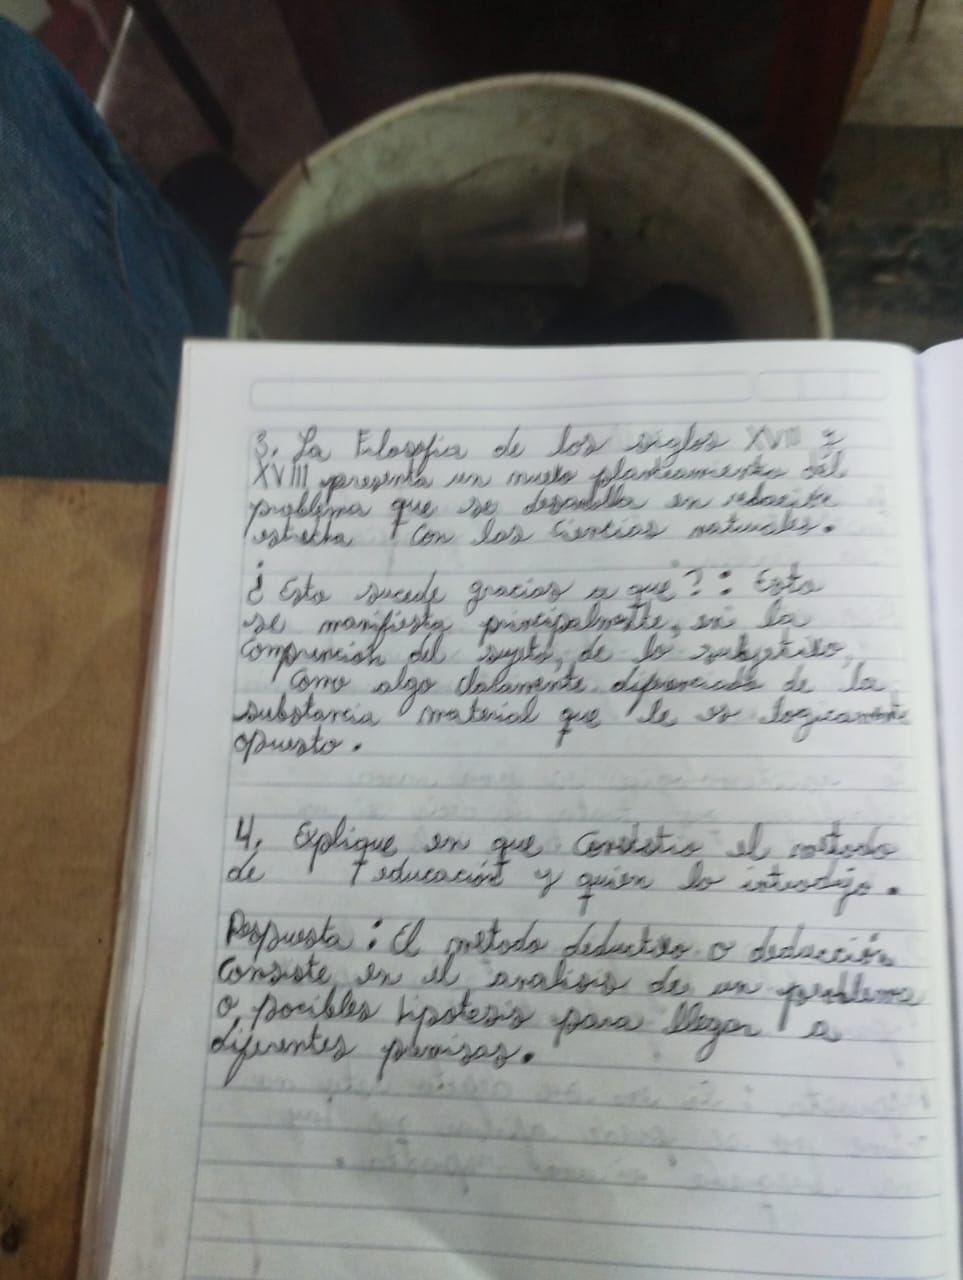 3. La Filosofia de los siglos XVII y
XVIII presenta un nuevo planteamiento del
problema que se desarolla en relación
estrecha con las Ciencias naturales.
¿ Esto sucede gracias a que? : Esto
se manifiesta principalmente, en la
Comprencion del sujeto, de lo subjetivo,
Como algo claramente diferenciado de la
substancia material que le es logicamente
opuesto.
4. Explique en que Consistio el metodo
de educación y quien lo introdujo.
Respuesta : El metodo deductivo o deducción
Consiste en el analisis de un problema
o pocibles hipotesis para llegar a
diferentes premisas.